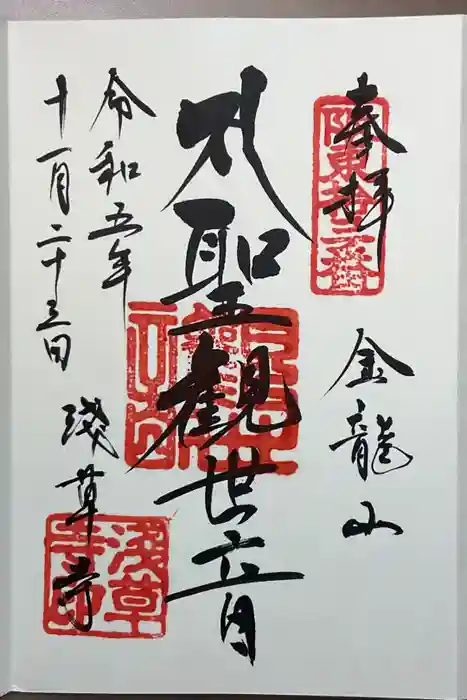 奉拝
阪東拾三番
金龍山
聖観世音
令和五年
十一月二十三日
淺草寺
淺草